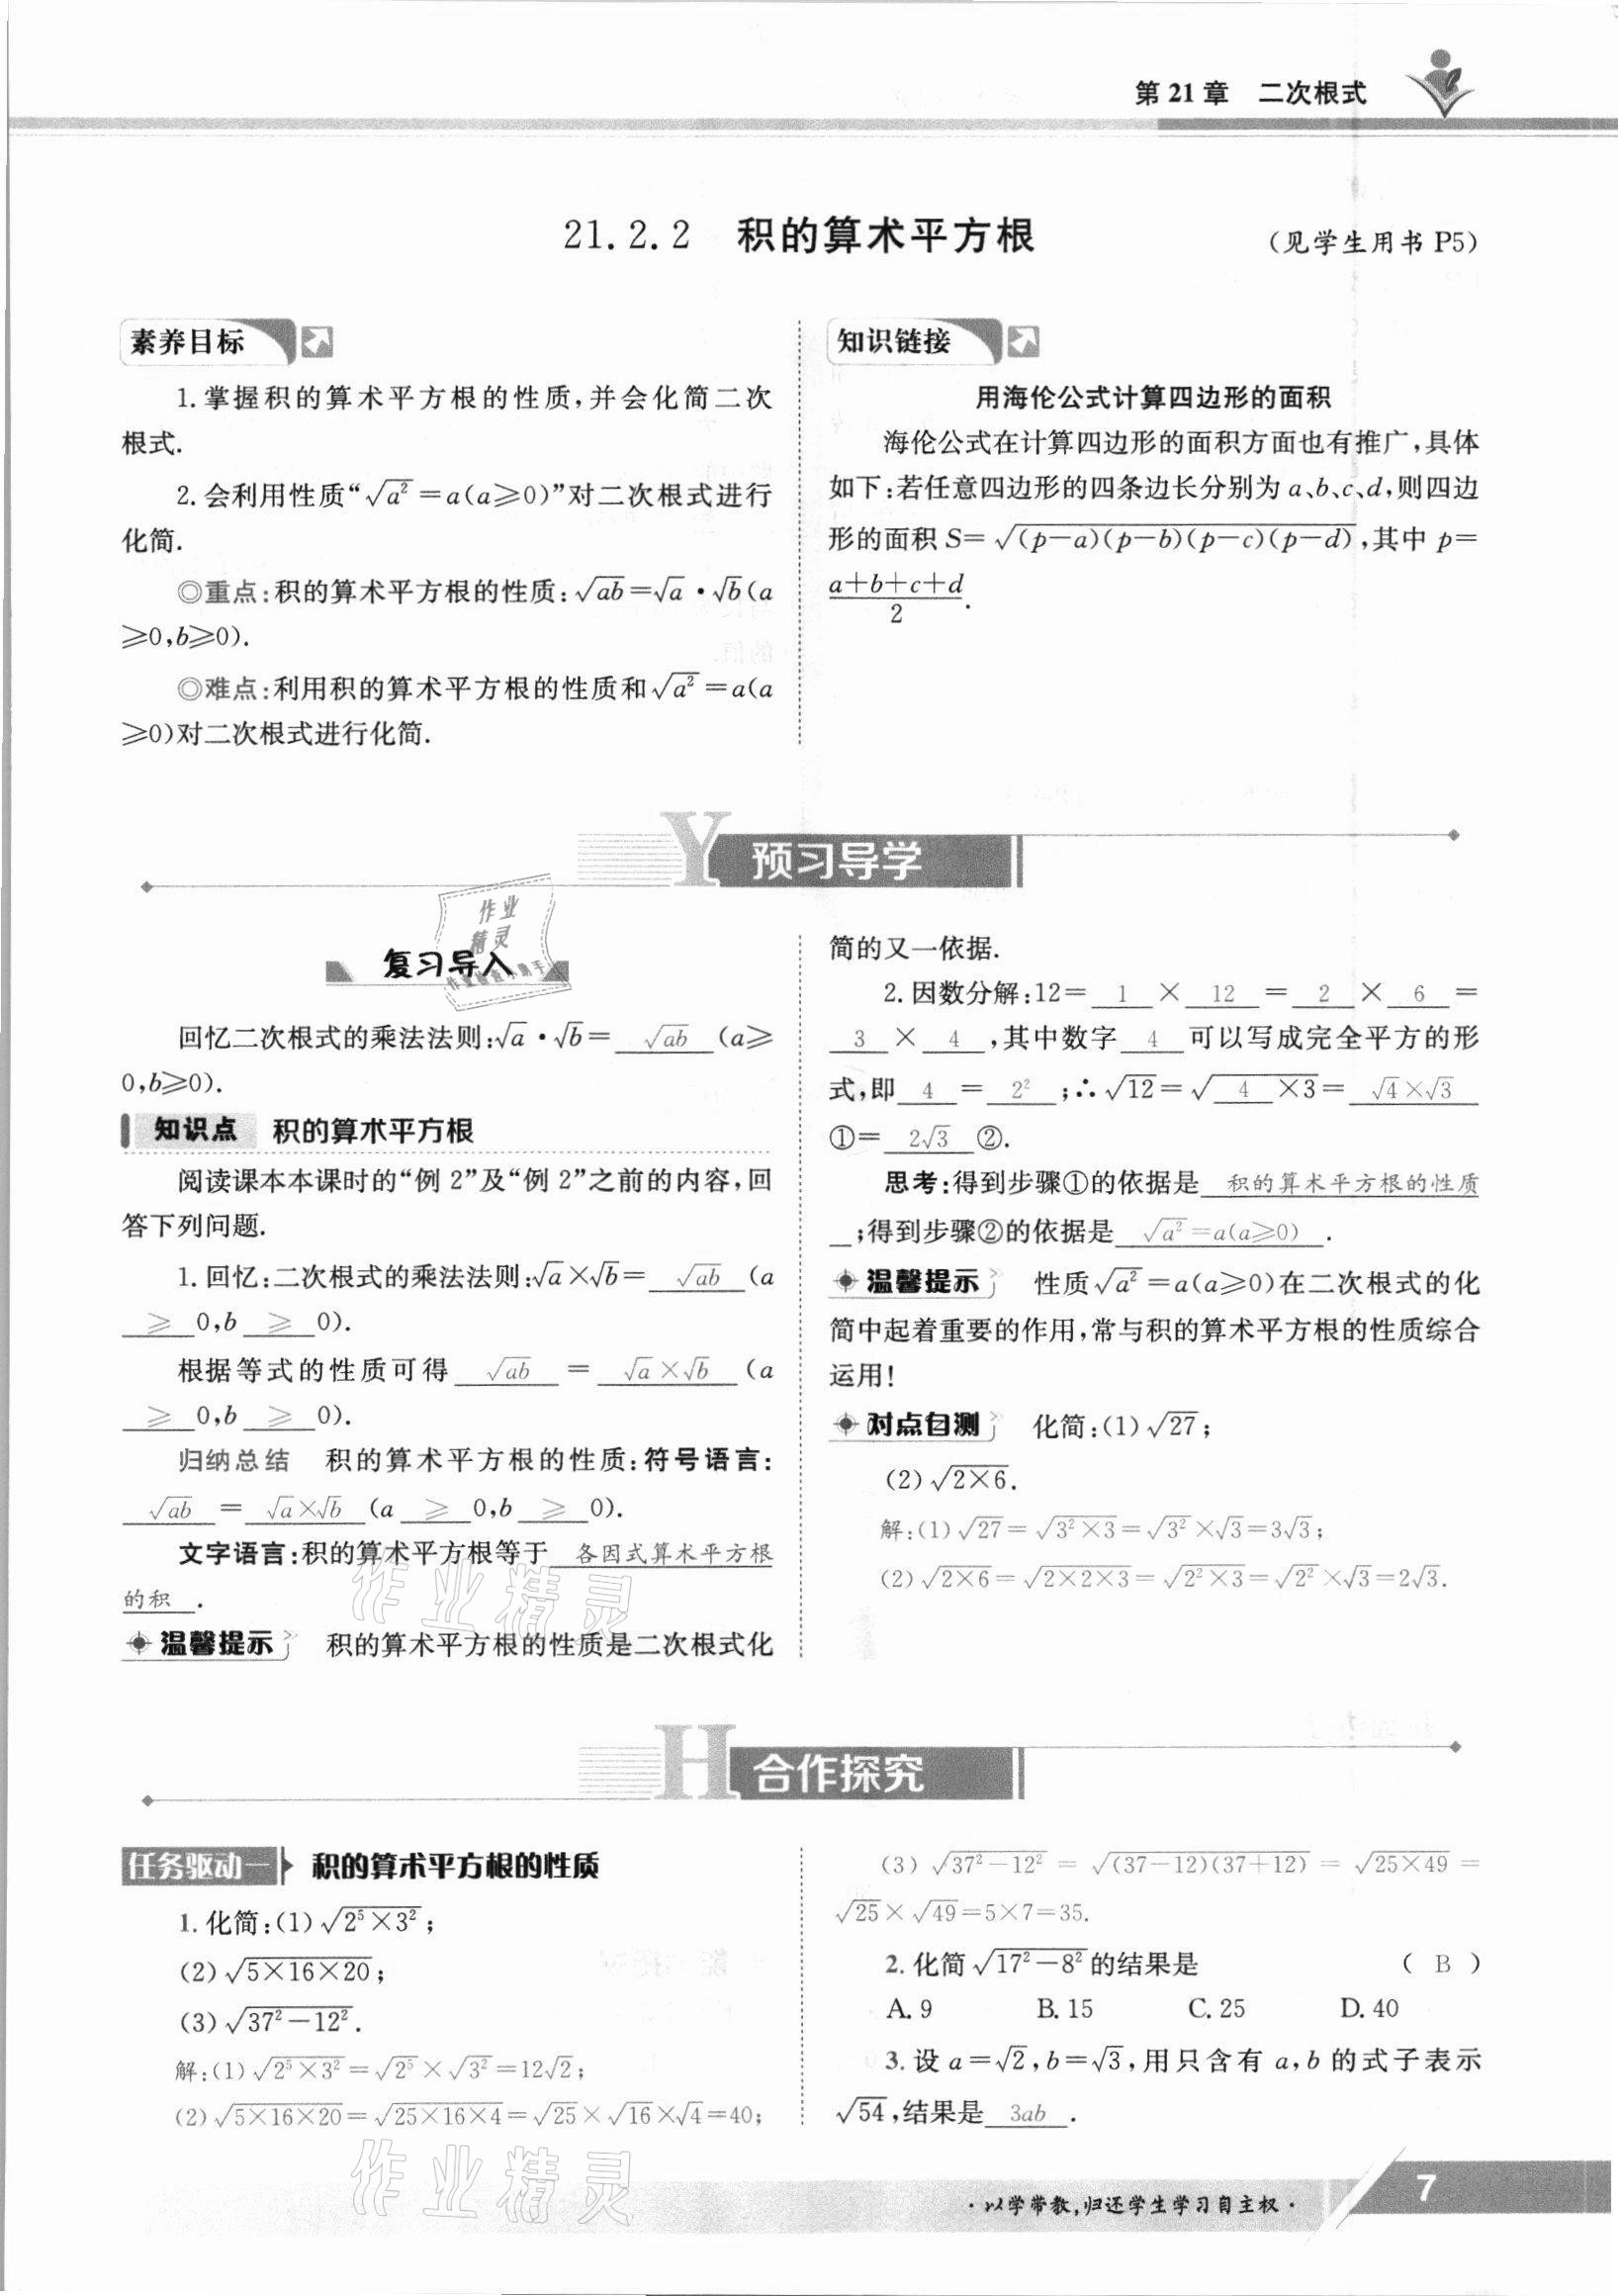 第 21 章 二次根式
21.2.2 积的算术平方根
(见学生用书 P5)
素养目标
1. 掌握积的算术平方根的性质,并会化简二次
根式.
2. 会利用性质“√a² = a(a≥0)”对二次根式进行
化简.
◎重点:积的算术平方根的性质:√ab=√a·√b(a
≥0,b≥0).
◎难点:利用积的算术平方根的性质和√a² =a(a
≥0)对二次根式进行化简.
知识链接
用海伦公式计算四边形的面积
海伦公式在计算四边形的面积方面也有推广,具体
如下:若任意四边形的四条边长分别为 a、b、c、d,则四边
形的面积 S= √(p-a)(p-b)(p-c)(p-d),其中 p=
a+b+c+d
2.
Y 预习导学
复习导入
回忆二次根式的乘法法则:√a·√b= √ab (a≥
0,b≥0).
知识点 积的算术平方根
阅读课本本课时的“例 2”及“例 2”之前的内容,回
答下列问题.
1. 回忆:二次根式的乘法法则:√a×√b= √ab (a
≥ 0,b ≥ 0).
根据等式的性质可得 √ab = √a×√b (a
≥ 0,b ≥ 0).
归纳总结 积的算术平方根的性质:符号语言:
√ab = √a×√b (a ≥ 0,b ≥ 0).
文字语言:积的算术平方根等于 各因式算术平方根
的积 .
温馨提示 积的算术平方根的性质是二次根式化
简的又一依据.
2. 因数分解:12= 1 × 12 = 2 × 6 =
3 × 4 ,其中数字 4 可以写成完全平方的形
式,即 4 = 2² ;∴√12=√4 ×3= √4×√3
①= 2√3 ②.
思考:得到步骤①的依据是 积的算术平方根的性质
;得到步骤②的依据是 √a²=a(a≥0) .
温馨提示 性质√a² =a(a≥0)在二次根式的化
简中起着重要的作用,常与积的算术平方根的性质综合
运用!
对点自测 化简:(1)√27;
(2)√2×6.
解:(1)√27=√3²×3=√3²×√3=3√3;
(2)√2×6=√2×2×3=√2²×3=√2²×√3=2√3.
H 合作探究
任务驱动一 积的算术平方根的性质
1. 化简:(1)√2⁵×3²;
(2)√5×16×20;
(3)√37²-12².
解:(1)√2⁵×3²=√2⁵×√3²=12√2;
(2)√5×16×20=√25×16×4=√25×√16×√4=40;
(3) √37²-12² = √(37-12)(37+12) = √25×49 =
√25×√49=5×7=35.
2. 化简√17²-8²的结果是 ( B )
A. 9 B. 15 C. 25 D. 40
3. 设 a=√2,b=√3,用只含有 a,b 的式子表示
√54,结果是 3ab .
·以学带教,归还学生学习自主权·
7
作业
精灵
作业精灵
作业精灵